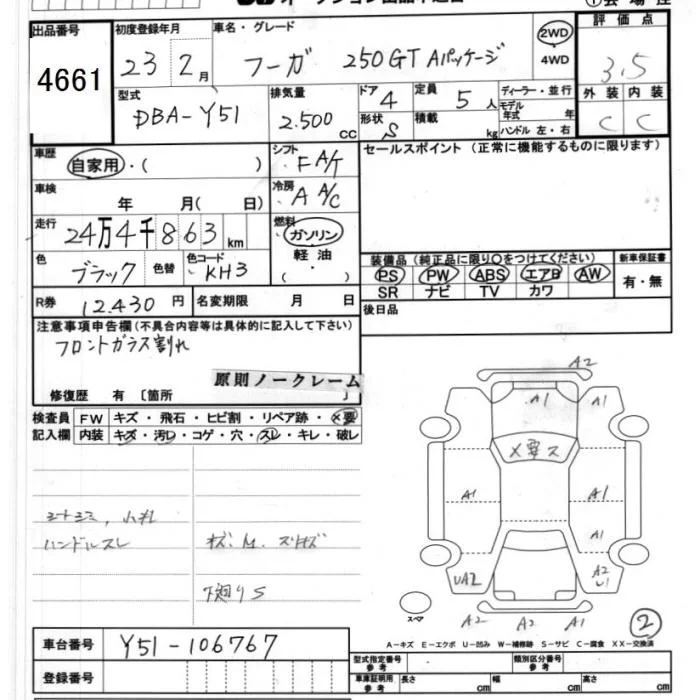 出品番号 4661
初度登録年月 23 2月
車名・グレード フーガ 250GT Aパッケージ
2WD
4WD
評価点 3.5
外装 内装
C C
型式 DBA-Y51
排気量 2.500 cc
ドア 4
形状 S
定員 5 人
積載 kg
ディーラー・並行
モデル年式 年
ハンドル 左・右
車歴 自家用・( )
シフト FA/T
セールスポイント(正常に機能するものに限ります)
車検 年 月( 日)
冷房 A A/C
走行 24万4千863km
燃料 ガソリン
軽油・( )
色 ブラック 色替
色コード KH3
装備品(純正品に限り〇をつけてください)
新車保証書
PS PW ABS エアB AW
有・無
SR ナビ TV カワ
R券 12.430 円
名変期限 月 日
後日品
注意事項申告欄(不具合内容等は具体的に記入して下さい)
フロントガラス割れ
原則ノークレーム
修復歴 有 〔箇所 〕
検査員 FW キズ・飛石・ヒビ割・リペア跡・×要
記入欄 内装 キズ・汚レ・コゲ・穴・スレ・キレ・破レ
ハンドルスレ
下廻りS
A2
A1 A1 A1
×要ス
A1 A1
A1
UA2 A2
スペア
A2 A2 A1
2
A-キズ E-エクボ U-凹み W-補修跡 S-サビ C-腐食 XX-交換済
車台番号 Y51-106767
型式指定番号 参考
類別区分番号 参考
登録番号
車庫証明用 参考
長さ cm 幅 cm 高さ cm